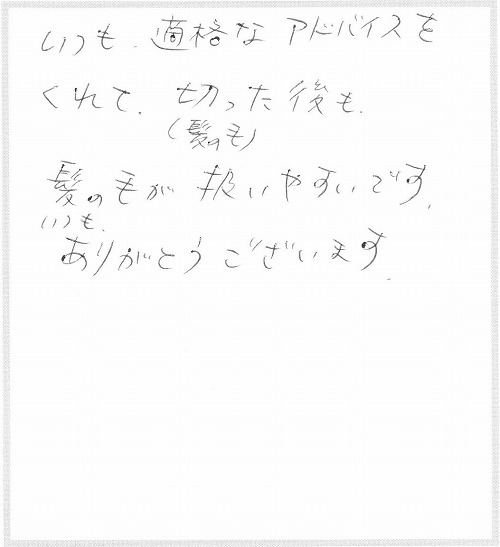 いつも、適格なアドバイスを
くれて、切った後も、
(髪の毛)
髪の毛が扱いやすいです。
いつも、
ありがとうございます。